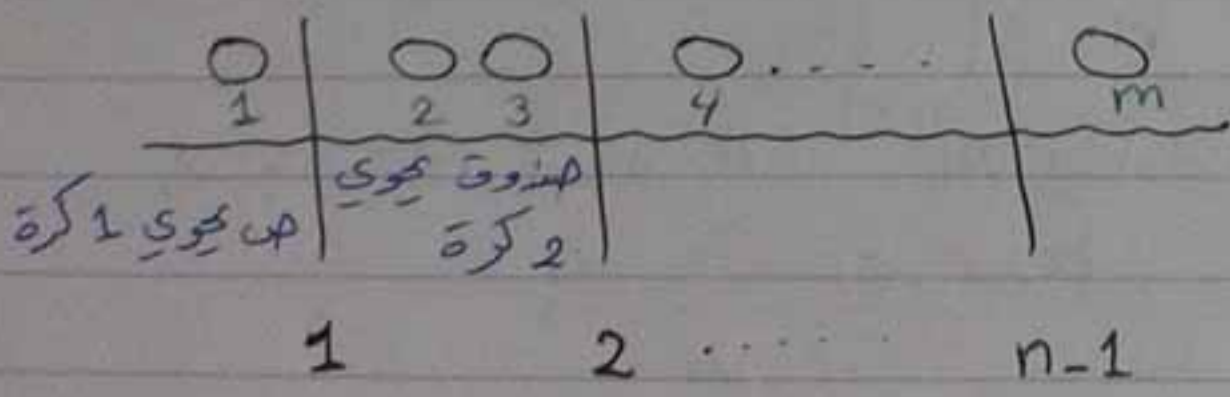 1 2 3 4 ..... m
ص يحوي 1 كرة
صندوق يحوي
2 كرة
1 2 ...... n-1